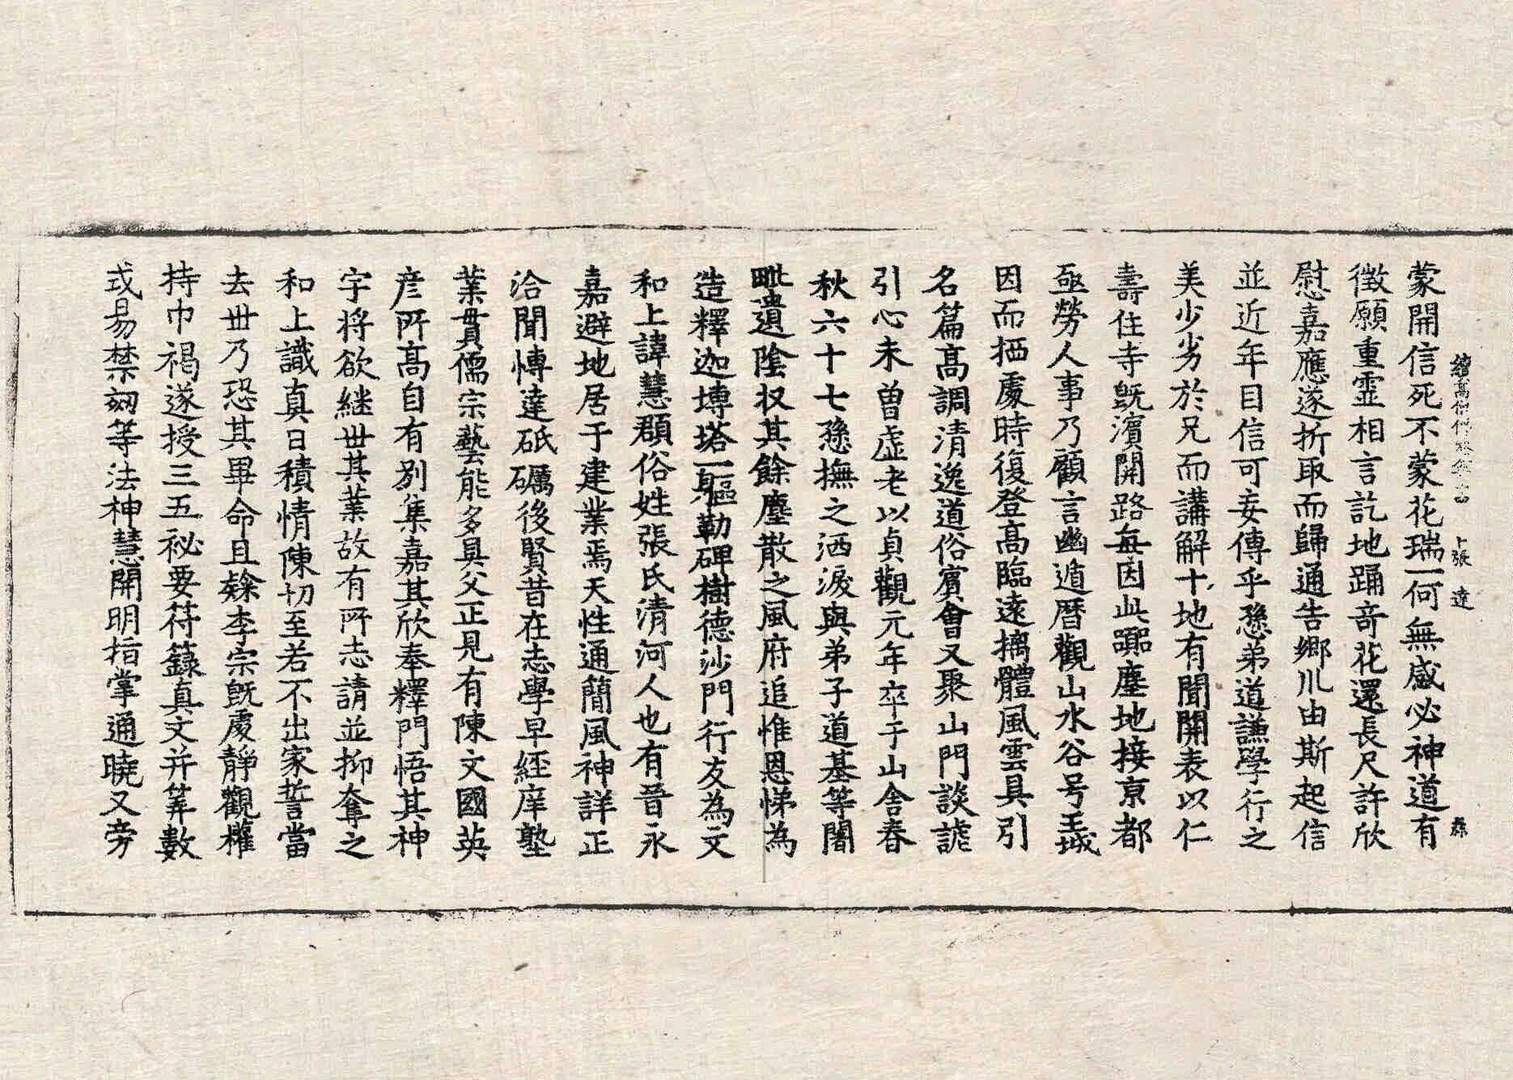 蒙開信死不蒙花瑞一何無感必神道有
徵願重靈相言訖地踊奇花還長尺許欣
慰嘉應遂折取而歸通告鄉川由斯起信
並近年目信可妄傳乎愻弟道謙學行之
美少劣於兄而講解十地有聞開表以仁
壽住寺旣濱開路每因此躁塵地接京都
亟勞人事乃顧言幽遁曆觀山水谷号王城
因而栖處時復登高臨遠摛體風雲具引
名篇高調清逸道俗賓會又聚山門談謔
引心未曾虛老以貞觀元年卒于山舍春
秋六十七愻撫之洒淚與弟子道基等闍
毗遺陰收其餘塵散之風府追惟恩悌為
造釋迦塼塔一軀勒碑樹德沙門行友為文
和上諱慧頵俗姓張氏清河人也有晉永
嘉避地居于建業焉天性通簡風神詳正
洽聞博達砥礪後賢昔在志學早經庠塾
業貫儒宗藝能多具父正見有陳文國英
彥所高自有別集嘉其欣奉釋門悟其神
宇將欲継世其業故有所志請並抑奪之
和上識真日積情陳切至若不出家誓當
去世乃恐其畢命且餘李宗旣慶靜觀權
持巾褐遂授三五祕要符籙真文并筭數
式易禁劾等法神慧開明指掌通曉又旁
續高僧傳 卜張達